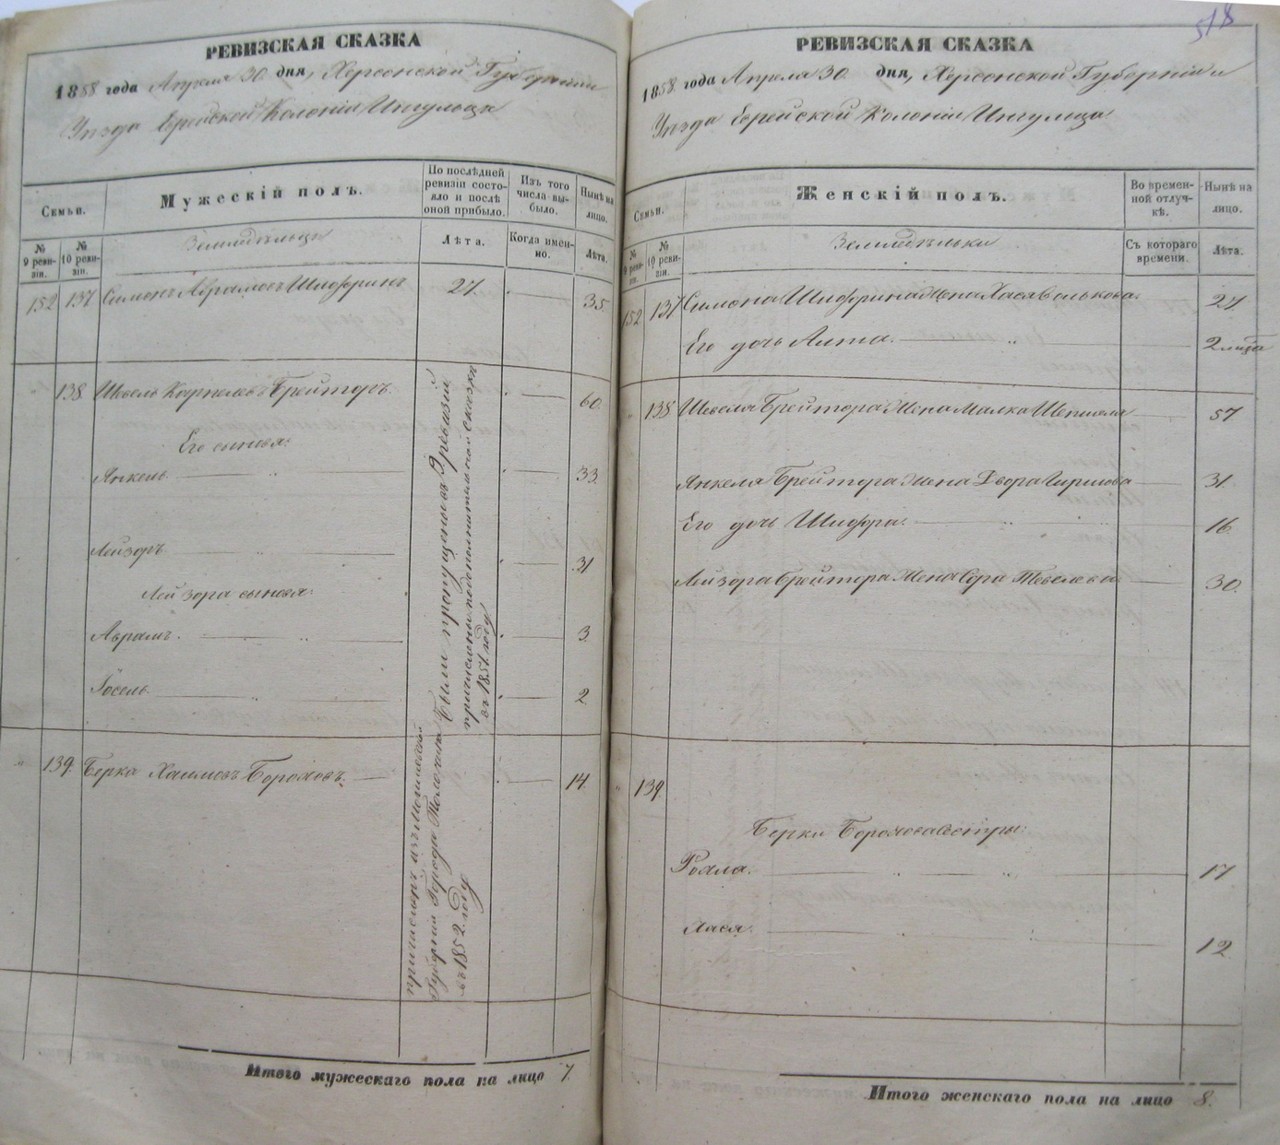 РЕВИЗСКАЯ СКАЗКА
1858 года Апреля 30 дня, Херсонской Губерніи
Уѣзда Еврейской Колоніи Ингульца
Семьи.
Мужескій полъ.
По послѣдней ревизіи состояло и послѣ оной прибыло.
Изъ того числа выбыло.
Нынѣ на лицо.
№ 9 ревизіи.
№ 10 ревизіи.
Земледѣльцы
Лѣта.
Когда именно.
Лѣта.
152 137 Симонъ Абрамовъ Шифринъ 27. 35.
138. Шевель Карпелевъ Брейторъ. 60.
Его сыновья:
Янкель 33.
Лейзоръ 31
Лейзора сыновья:
Абрамъ. 3.
Іосель 2
Были пропущены въ 9 ревизіи
причислены по дополнительной сказкѣ
въ 1851 году
139. Берка Хаимовъ Бороховъ. 14.
причисленъ изъ Могилевской
Губерніи Города
въ 1852 году
Итого мужескаго пола на лицо 7.
518
РЕВИЗСКАЯ СКАЗКА
1858 года Апреля 30 дня, Херсонской Губерніи и
Уѣзда Еврейской Колоніи Ингульца
Семьи.
Женскій полъ.
Во временной отлучкѣ.
Нынѣ на лицо.
№ 9 ревизіи.
№ 10 ревизіи.
Земледѣльки
Съ котораго времени.
Лѣта.
152 137 Симона Шифрина Жена Хася Волькова. 27.
Его дочь Алта. 2 лѣта
138 Шевеля Брейтора Жена Малка 57
Янкеля Брейтора Жена Двора Гиршова 31.
Его дочь Шифра. 16.
Лейзора Брейтора Жена Сора Тевелева 30.
139.
Берки Борохова сестры:
Рохла. 17
Хася. 12.
Итого женскаго пола на лицо 8.